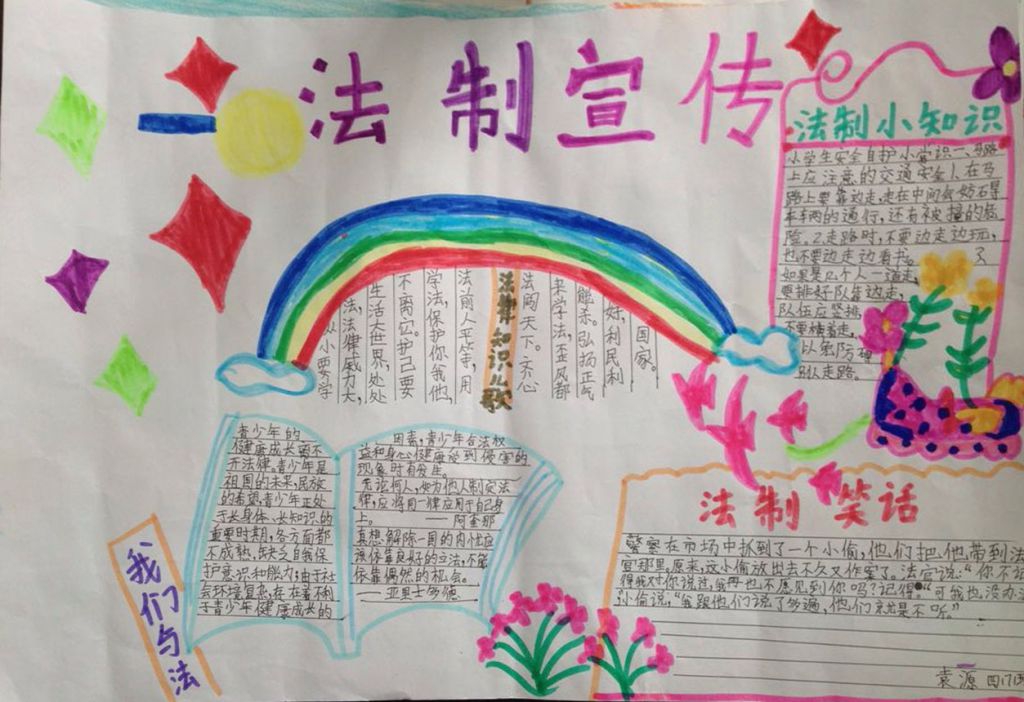 法制宣传
法制小知识
小学生安全自护小常识一、马路
上应注意的交通安全1、在马
路上要靠边走,走在中间会妨碍
车辆的通行,还有被撞的危
险。2.走路时,不要边走边玩,
也不要边走边看书。3
如果是几个人一道走,
要排好队靠边走,
队伍应竖排,
不要横着走。
以免防碍
别人走路。
法律知识儿歌
国家。
好,利民利
解杀。弘扬正气
来学法,歪风都
法闻天下。齐心
法前人平等,用
学法,保护你我他,
不离它。护己要
生活大世界,处处
法,法律威力大,
从小要学
青少年的
健康成长离不
开法律。青少年是
祖国的未来,民族
的希望,青少年正处
于长身体、长知识的
重要时期,各方面都
不成熟,缺乏自我保
护意识和能力,由于社
会环境复杂,存在着不利
于青少年健康成长的
因素,青少年合法权
益和身心健康受到侵害的
现象时有发生。
无论何人,如为他人制定法
律,应将同一律应用于自己身
上。——阿奎那
真想解除一国的内忧应
该依靠良好的立法,不能
依靠偶然的机会。
——亚里士多德
我们与法
法制笑话
警察在市场中抓到了一个小偷,他们把他带到法
官那里,原来,这小偷放出去不久又作案了。法官说:“你不记
得我对你说过,我再也不愿见到你吗?记得“可我也没办法
小偷说,“我跟他们说了多遍,他们就是不听。”
袁源 四(7)班